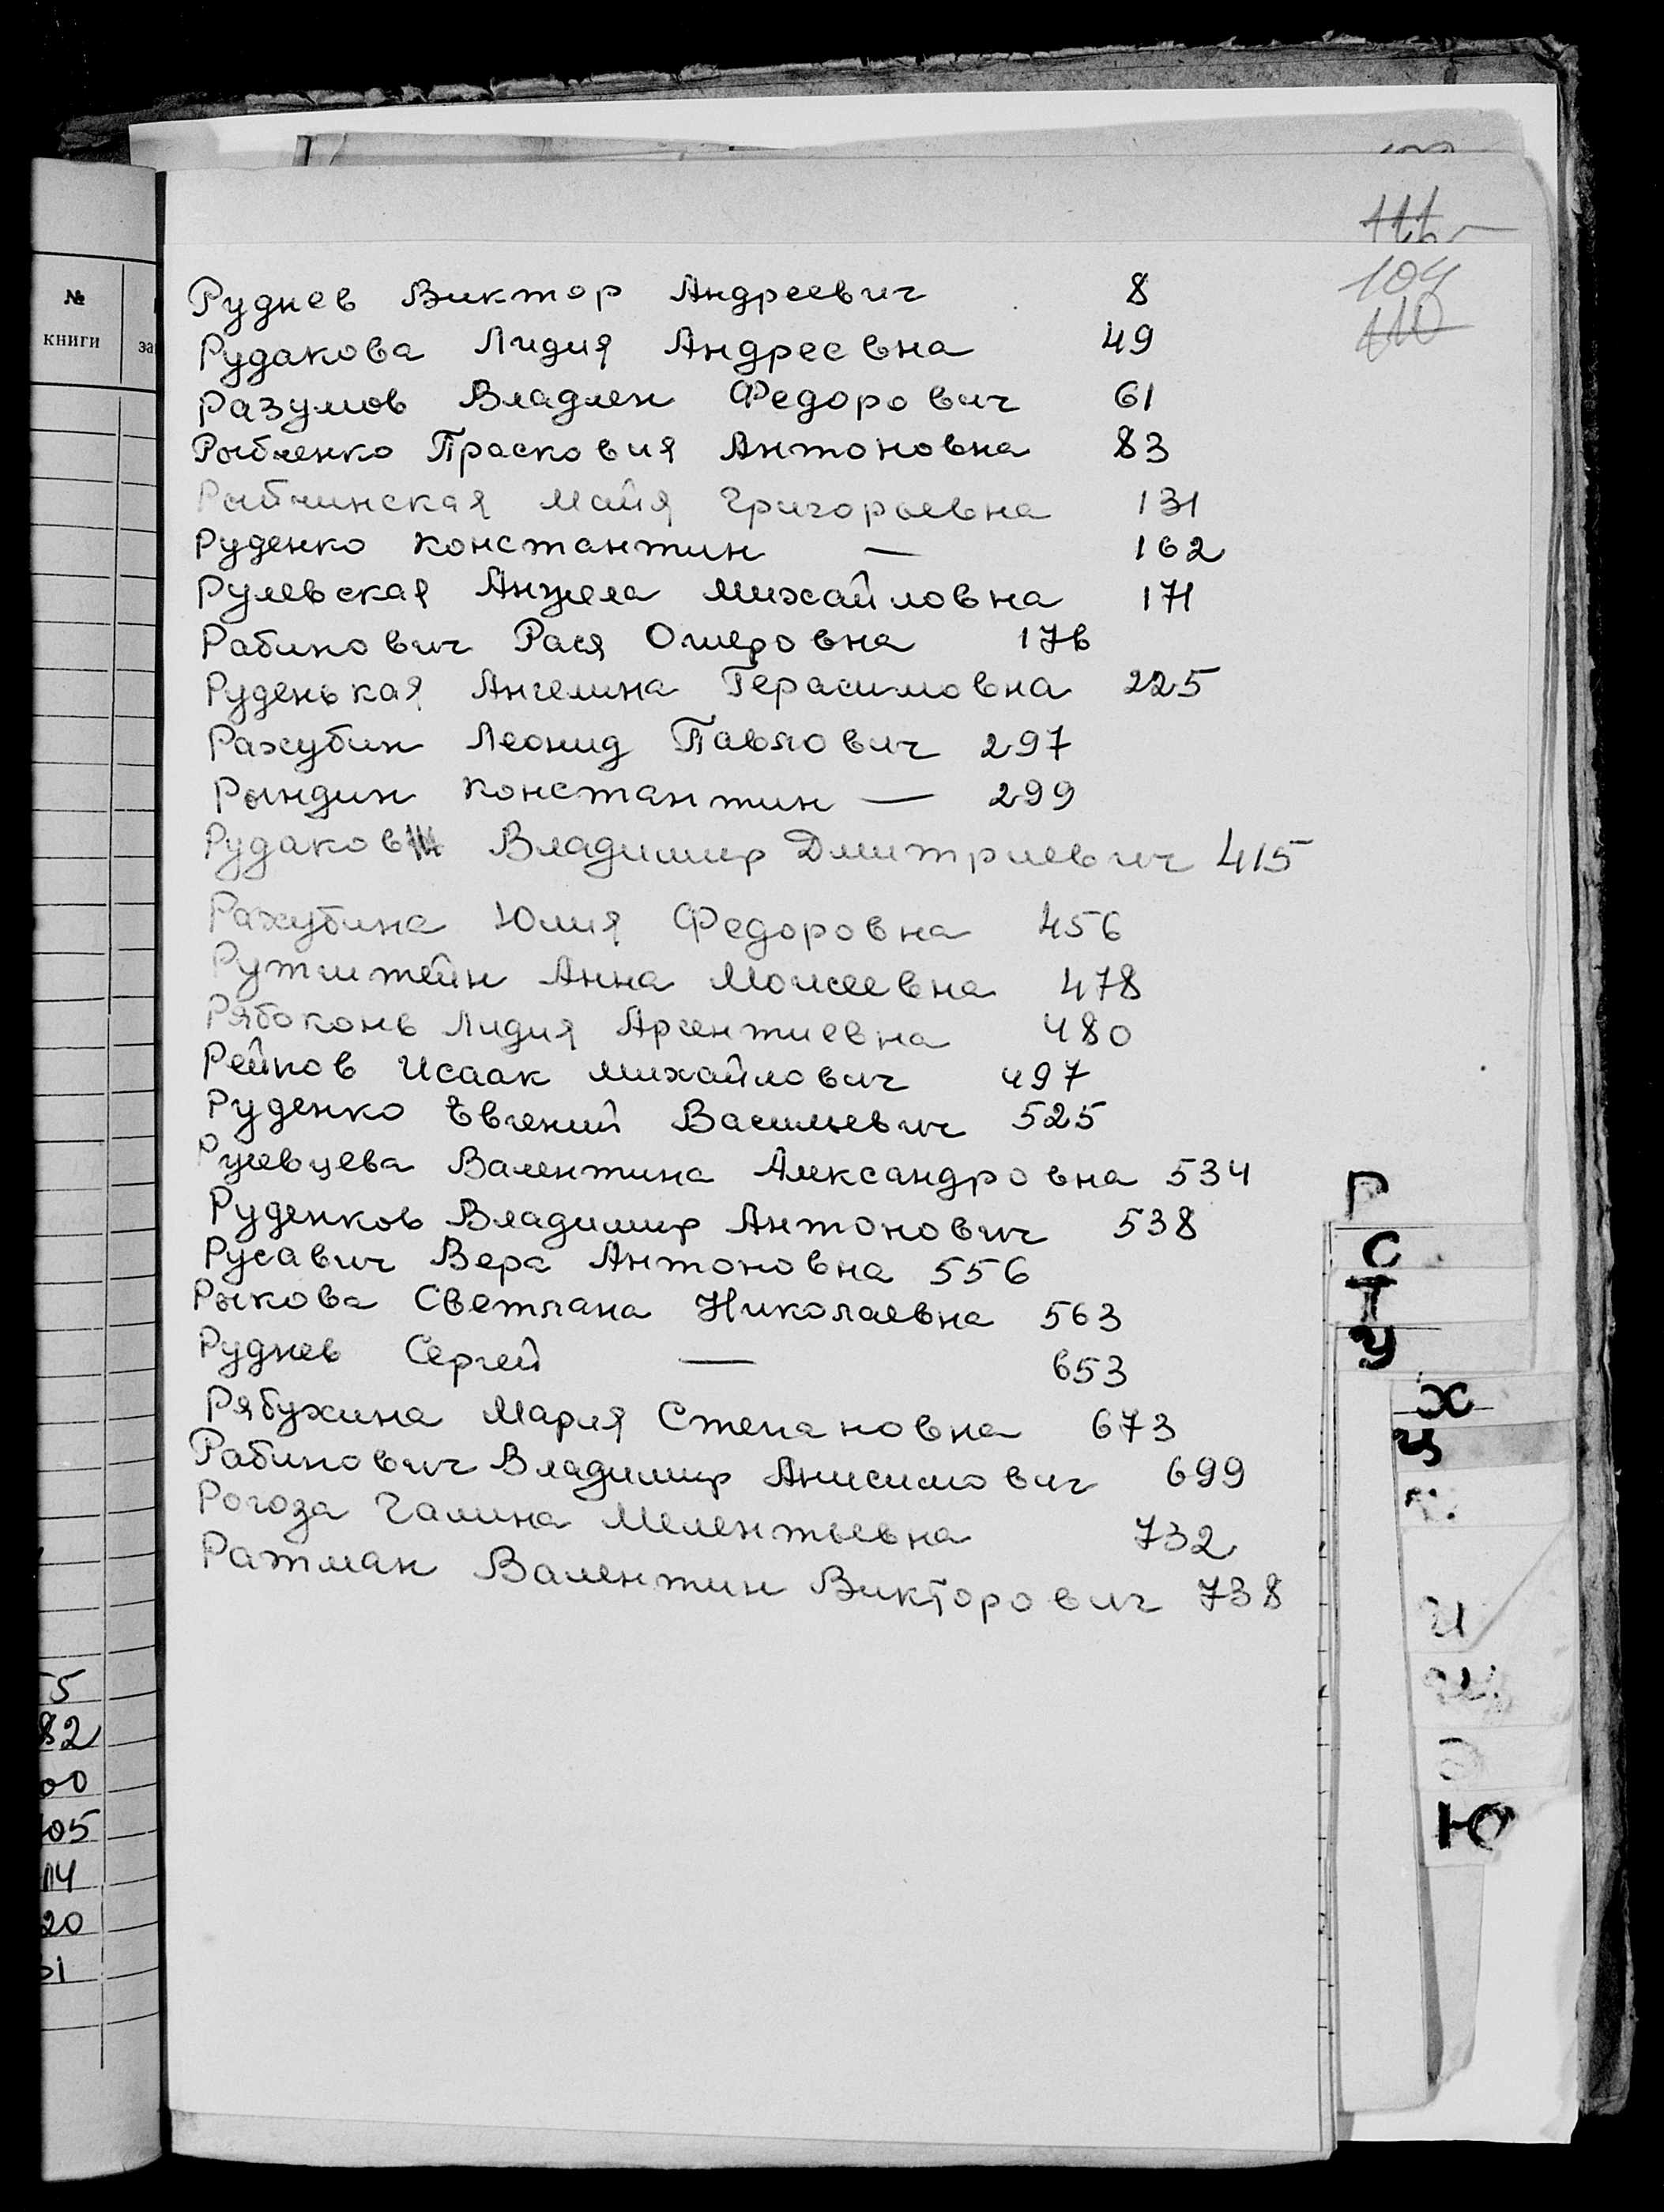 №
книги
за
111
104
110
Руднев Виктор Андреевич 8
Рудакова Лидия Андреевна 49
Разумов Владлен Федорович 61
Рыбченко Прасковия Антоновна 83
Рыбчинская Майя Григорьевна 131
Руденко Константин — 162
Рулевская Анжела Михайловна 171
Рабинович Рася Ошеровна 176
Руденькая Ангелина Герасимовна 225
Рахубин Леонид Павлович 297
Рындин Константин — 299
Рудаков Владимир Дмитриевич 415
Рахубина Юлия Федоровна 456
Рутштейн Анна Моисеевна 478
Рябоконь Лидия Арсентиевна 480
Рейнов Исаак Михайлович 497
Руденко Евгений Васильевич 525
Валентина Александровна 534
Руденков Владимир Антонович 538
Русавич Вера Антоновна 556
Рыкова Светлана Николаевна 563
Руднев Сергей — 653
Рябухина Мария Степановна 673
Рабинович Владимир Анисимович 699
Рогоза Галина Мелентьевна 732
Ратман Валентин Викторович 738
Р
С
Т
У
Х
Ц
Ю
5
82
00
05
114
20
51